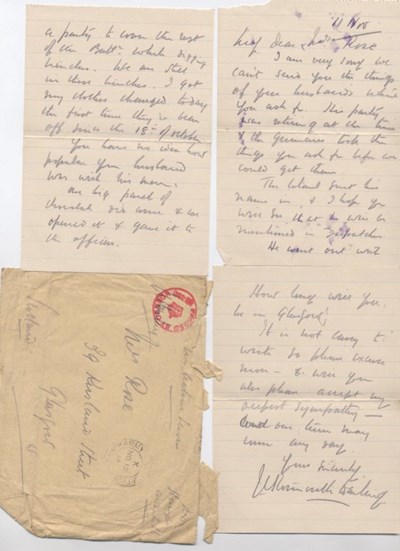 11 Nov
My dear Mrs Rose
I am very sorry we
can't send you the things
of your husbands which
you ask for. His party
was retiring at the time
& the Germans took the
things you ask for before we
could get them
The Colonel sent his
name in & I hope you
will see that he will be
mentioned in
He went out with
a party to cover the rest
of the Battn. while digging
trenches. We are still
in these trenches. I got
my clothes changed today
the first time they've been
off since the 15th of october
You have no idea how
popular your husband
was with his men.
One big parcel of
did come & we
opened it & gave it to
the officers.
How long will you
be in Glasgow?
It is not easy to
write so please excuse
more - & will you
also please accept my
deepest sympathy -
our turn may
come any day.
Yours sincerely
Mrs Rose
39 Street
Glasgow
Scotland